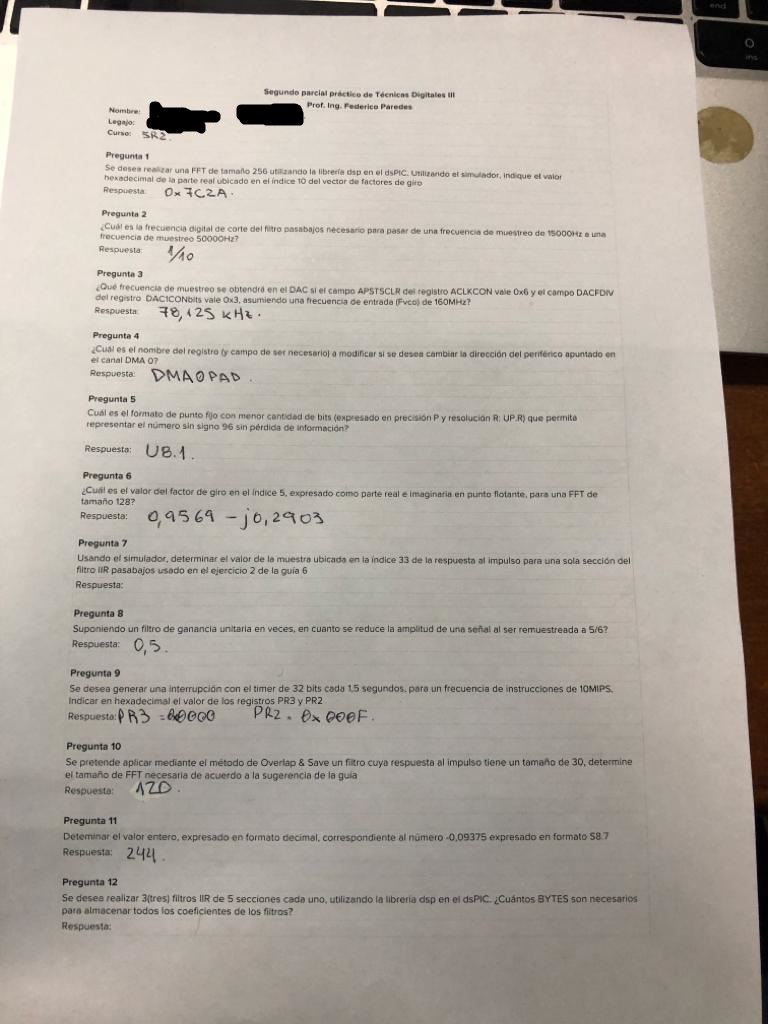 end
ins
Segundo parcial práctico de Técnicas Digitales III
Prof. Ing. Federico Paredes
Nombre:
Legajo:
Curso: 5R2.
Pregunta 1
Se desea realizar una FFT de tamaño 256 utilizando la librería dsp en el dsPIC. Utilizando el simulador, indique el valor
hexadecimal de la parte real ubicado en el índice 10 del vector de factores de giro
Respuesta: 0x7C2A.
Pregunta 2
¿Cuál es la frecuencia digital de corte del filtro pasabajos necesario para pasar de una frecuencia de muestreo de 15000Hz a una
frecuencia de muestreo 50000Hz?
Respuesta: 1/10
Pregunta 3
¿Qué frecuencia de muestreo se obtendrá en el DAC si el campo APSTSCLR del registro ACLKCON vale 0x6 y el campo DACFDIV
del registro DAC1CONbits vale 0x3, asumiendo una frecuencia de entrada (Fvco) de 160MHz?
Respuesta: 78,125 kHz.
Pregunta 4
¿Cuál es el nombre del registro (y campo de ser necesario) a modificar si se desea cambiar la dirección del periférico apuntado en
el canal DMA 0?
Respuesta: DMA0PAD.
Pregunta 5
Cuál es el formato de punto fijo con menor cantidad de bits (expresado en precisión P y resolución R: UP.R) que permita
representar el número sin signo 96 sin pérdida de información?
Respuesta: U8.1.
Pregunta 6
¿Cuál es el valor del factor de giro en el índice 5, expresado como parte real e imaginaria en punto flotante, para una FFT de
tamaño 128?
Respuesta: 0,9569 - j0,2903
Pregunta 7
Usando el simulador, determinar el valor de la muestra ubicada en la índice 33 de la respuesta al impulso para una sola sección del
filtro IIR pasabajos usado en el ejercicio 2 de la guía 6
Respuesta:
Pregunta 8
Suponiendo un filtro de ganancia unitaria en veces, en cuanto se reduce la amplitud de una señal al ser remuestreada a 5/6?
Respuesta: 0,5.
Pregunta 9
Se desea generar una interrupción con el timer de 32 bits cada 1,5 segundos, para un frecuencia de instrucciones de 10MIPS.
Indicar en hexadecimal el valor de los registros PR3 y PR2
Respuesta: PR3 = 0000 PR2 = 0x000F.
Pregunta 10
Se pretende aplicar mediante el método de Overlap & Save un filtro cuya respuesta al impulso tiene un tamaño de 30, determine
el tamaño de FFT necesaria de acuerdo a la sugerencia de la guía
Respuesta: 120.
Pregunta 11
Deteminar el valor entero, expresado en formato decimal, correspondiente al número -0,09375 expresado en formato S8.7
Respuesta: 244.
Pregunta 12
Se desea realizar 3(tres) filtros IIR de 5 secciones cada uno, utilizando la librería dsp en el dsPIC. ¿Cuántos BYTES son necesarios
para almacenar todos los coeficientes de los filtros?
Respuesta: